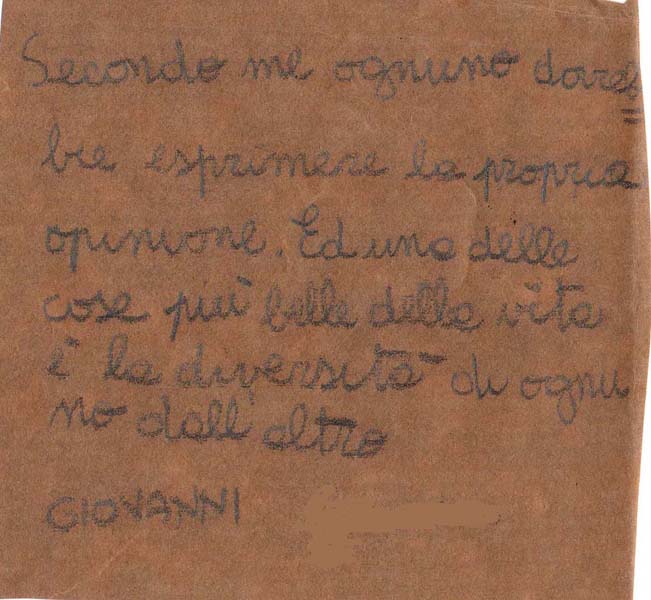 Secondo me ognuno doveb=
bie esprimere la propria
opinione. Ed una delle
cose più belle della vita
è la diversità di ognu
no dall'altro
GIOVANNI